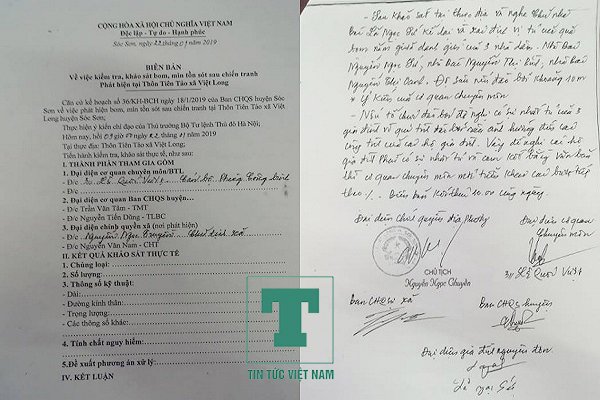 CỘNG HÒA XÃ HỘI CHỦ NGHĨA VIỆT NAM
Độc lập - Tự do - Hạnh phúc
Sóc Sơn, ngày 22 tháng 01 năm 2019
BIÊN BẢN
Về việc kiểm tra, khảo sát bom, mìn tồn sót sau chiến tranh
Phát hiện tại Thôn Tiên Tảo xã Việt Long
Căn cứ kế hoạch số 36/KH-BCH ngày 18/1/2019 của Ban CHQS huyện Sóc
Sơn về việc phát hiện bom, mìn tồn sót sau chiến tranh tại Thôn Tiên Tảo xã Việt
Long huyện Sóc Sơn;
Thực hiện ý kiến chỉ đạo của Thủ trưởng Bộ Tư lệnh Thủ đô Hà Nội;
Hôm nay, hồi 09 giờ 00 22 tháng 01 năm 2019
Tại thực địa: Thôn Tiên Tảo xã Việt Long
Tiến hành kiểm tra, khảo sát thực tế, như sau:
I. THÀNH PHẦN THAM GIA GỒM
1. Đại diện cơ quan chuyên môn/BTL
- Đ/c Lê Quốc Vượng Cán bộ Phòng Công binh
2. Đại diện cơ quan Ban CHQS huyện
- Đ/c Trần Văn Tâm - TMT
- Đ/c Nguyễn Tiến Dũng - TLBC
3. Đại diện chính quyền xã (nơi phát hiện)
- Đ/c Nguyễn Ngọc Chuyên Chủ tịch xã
- Đ/c Nguyễn Văn Nam - CHT
II. KẾT QUẢ KHẢO SÁT THỰC TẾ
1. Chủng loại:
2. Số lượng:
3. Thông số kỹ thuật:
- Dài:
- Đường kính thân:
- Trọng lượng:
- Các thông số khác:
4. Tính chất nguy hiểm:
5.Đề xuất phương án xử lý:
IV. KẾT LUẬN
- Sau khảo sát tại thực địa và nghe chủ nhà
bà Lê Ngọc kể lại và xác định vị trí quả
bom nằm giữa danh giới của 3 nhà dân. Nhà bà
Nguyễn Ngọc, nhà bà Nguyễn Thị, nhà bà
Nguyễn Thị. Độ sâu nếu đào bới khoảng 10m
* Ý kiến của cơ quan chuyên môn
- Nếu tổ chức đào bới đề nghị có sự nhất trí của 3
gia đình vì quá trình đào bới nếu ảnh hưởng đến các
công trình của các hộ gia đình. Vậy đề nghị các hộ
gia đình phải có sự nhất trí và cam kết bằng văn bản
thì cơ quan chuyên môn mới triển khai các bước tiếp
theo. Biên bản kết thúc 10.00 cùng ngày.
Đại diện chính quyền địa phương
Đại diện cơ quan
chuyên môn
CHỦ TỊCH
Nguyễn Ngọc Chuyên
3// Lê Quốc Vượng
Ban CHQS xã
Ban CHQS huyện
Đại diện gia đình nguyên đơn
T
TIN TỨC VIỆT NAM